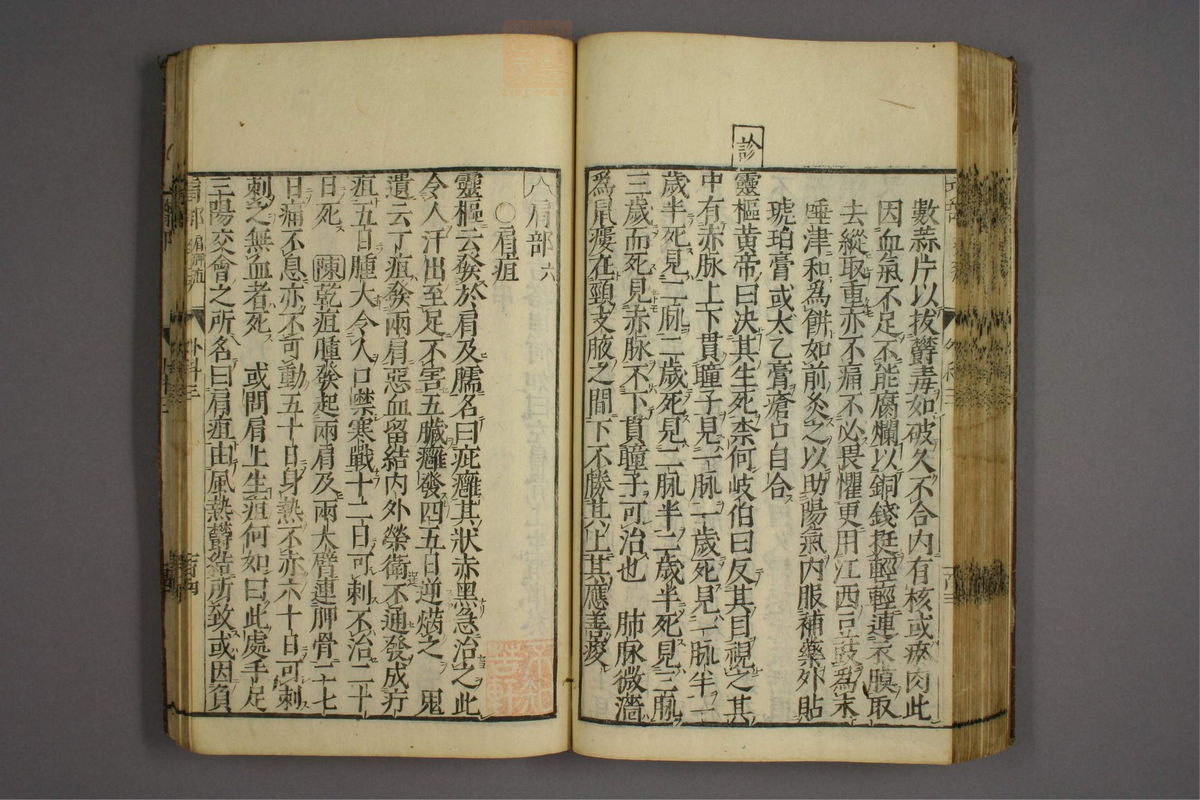 數蒜片以拔欝毒如破久不合内有核或瘀肉此
因血氣不足不能腐爛以銅錢挺輕輕連衣膜取
去縱取重亦不痛不必畏懼更用江西豆豉為末
唾津和為餅如前灸之以助陽氣内服補藥外貼
琥珀膏或太乙膏瘡口自合
診
靈樞黃帝曰決其生死柰何岐伯曰反其目視之其
中有赤脉上下貫瞳子見一脉一歲死見一脉半一
歲半死見二脉二歲死見二脉半二歲半死見三脉
三歲而死見赤脉不下貫瞳子可治也 肺脉微濇
為鼠瘻在頸支腋之間下不勝其上其應善痠
肩部 六
○肩疽
靈樞云發於肩及臑名曰疵癰其狀赤黑急治之此
令人汗出至足不害五臟癰發四五日逆焫之 鬼
遺云丁疽發兩肩惡血留結内外榮衛不通發成疔
疽五日腫大令人口噤寒戰十二日可刺不治二十
日死 陳乾疽腫發起兩肩及兩大臂連胛骨二十七
日痛不息亦不可動五十日身熱不赤六十日可刺
刺之無血者死 或問肩上生疽何如曰此處手足
三陽交會之所名曰肩疽由風熱欝結所致或因負
肩部
外科三